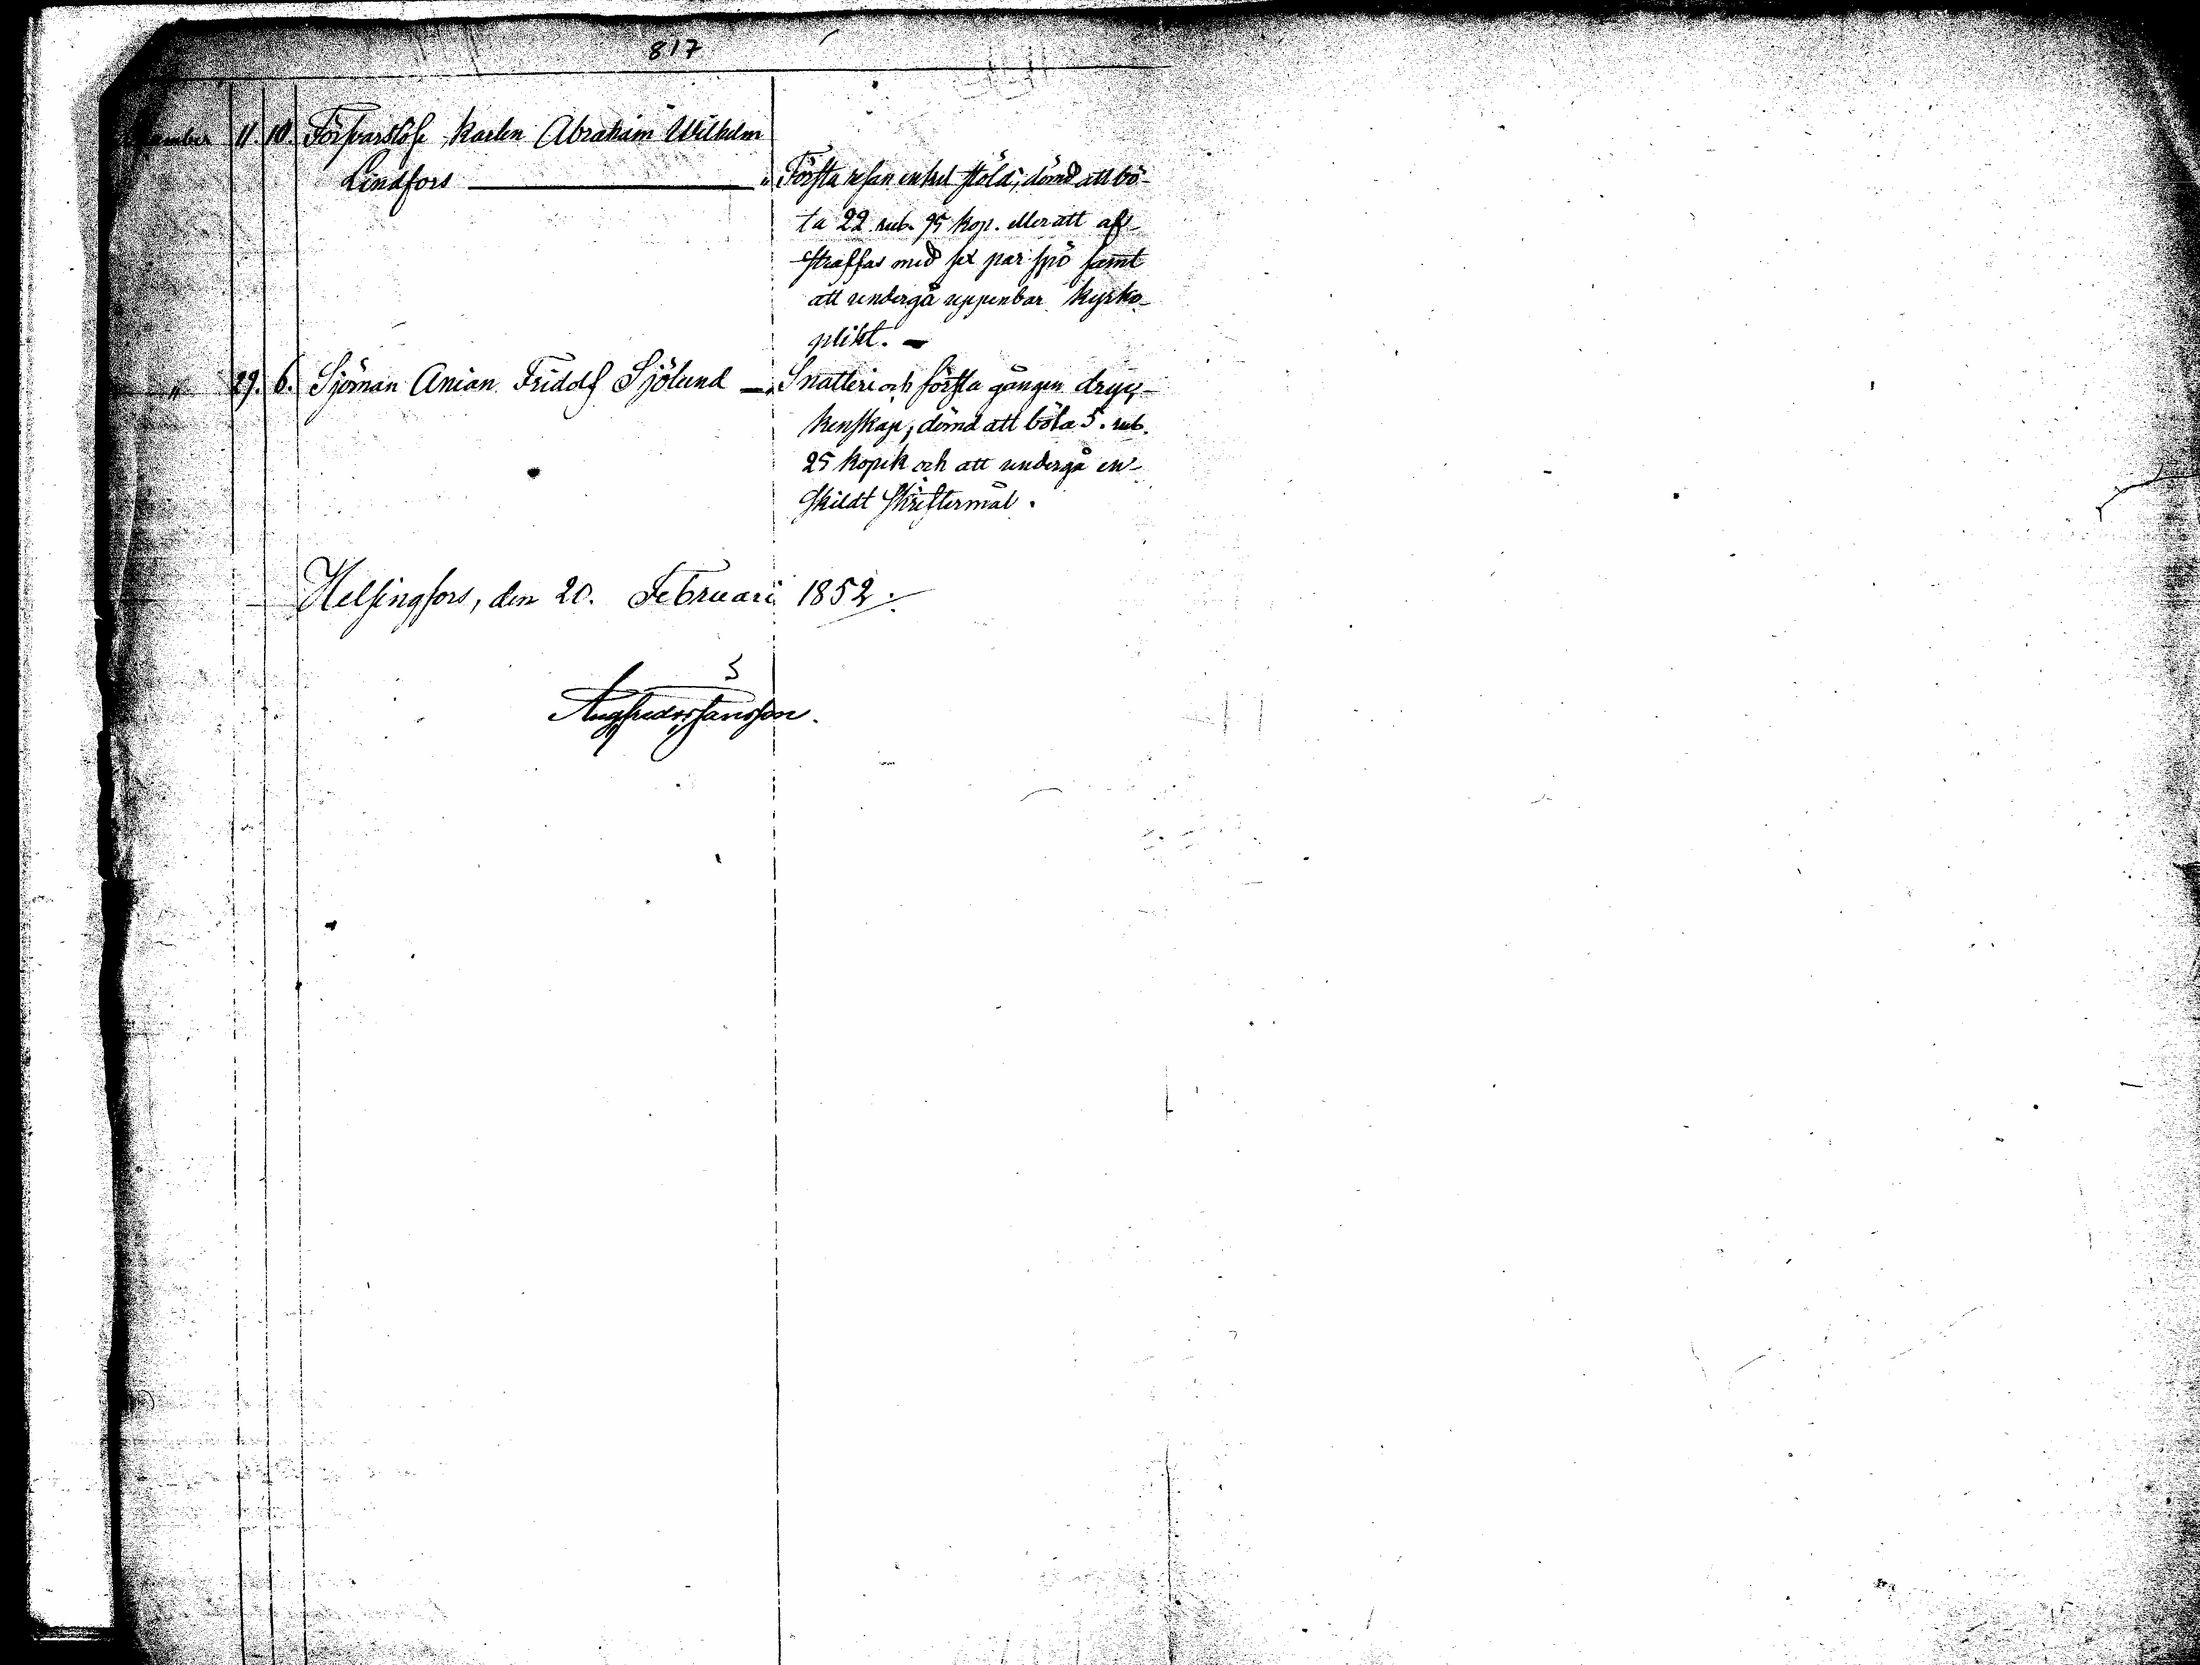 817
11. 10. Försvarslöse Karlen Abraham Wilhelm
Lindfors
Första resan enkel stöld; dömd att bö-
ta 22 rub. 95 kop. eller att af-
straffas med sex par spö samt
att undergå uppenbar kyrko-
plikt. —
" 29. 6. Sjöman Anian Fridolf Sjölund — Snatteri och första gången dryc-
kenskap, dömd att böta 5. rub.
25 kopek och att undergå en-
skildt skriftermål.
Helsingfors, den 20. Februari 1852.